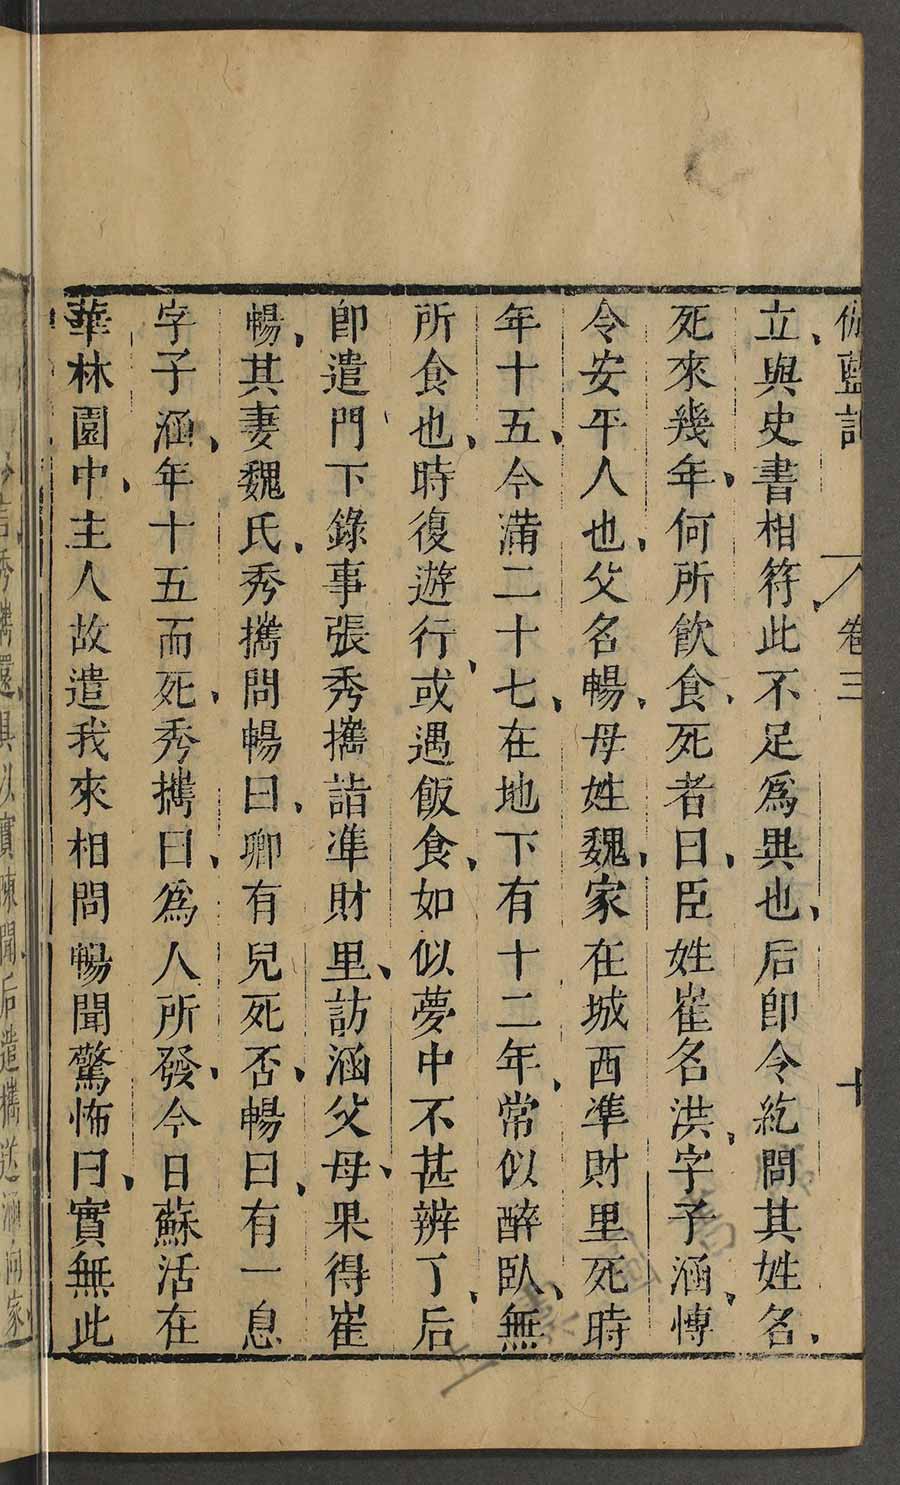 伽藍記 卷三 十
立與史書相符此不足爲異也后即令紇問其姓名
死來幾年何所飲食死者曰臣姓崔名洪字子涵愽
令安平人也父名暢母姓魏家在城西準財里死時
年十五今滿二十七在地下有十二年常似醉臥無
所食也時復遊行或遇飯食如似夢中不甚辨了后
即遣門下錄事張秀攜詣準財里訪涵父母果得崔
暢其妻魏氏秀攜問暢曰卿有兒死否暢曰有一息
字子涵年十五而死秀攜曰爲人所發今日蘇活在
華林園中主人故遣我來相問暢聞驚怖曰實無此